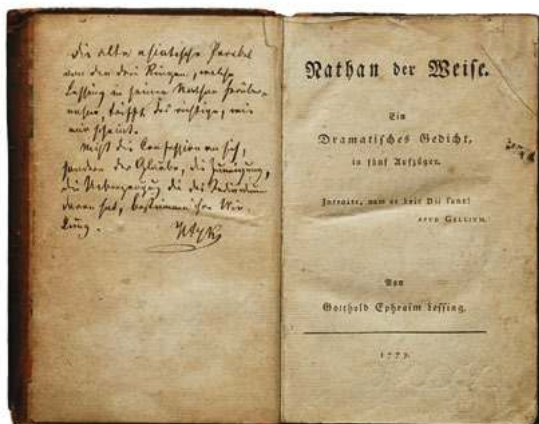 Die alte asiatische Parabel
von den drei Ringen, welche
Lessing in seinem Nathan herüber-
nahm, trifft das richtige, wie
mir scheint.
Nicht die Confession an sich,
sondern der Glaube, die
die Ueberzeugung die das Individuum
daran hat, bestimmen ihre Wir-
kung.
Nathan der Weise.
Ein
Dramatisches Gedicht,
in fünf Aufzügen.
Introite, nam et heic Dii sunt!
APVD GELLIVM.
Von
Gotthold Ephraim Lessing.
1779.